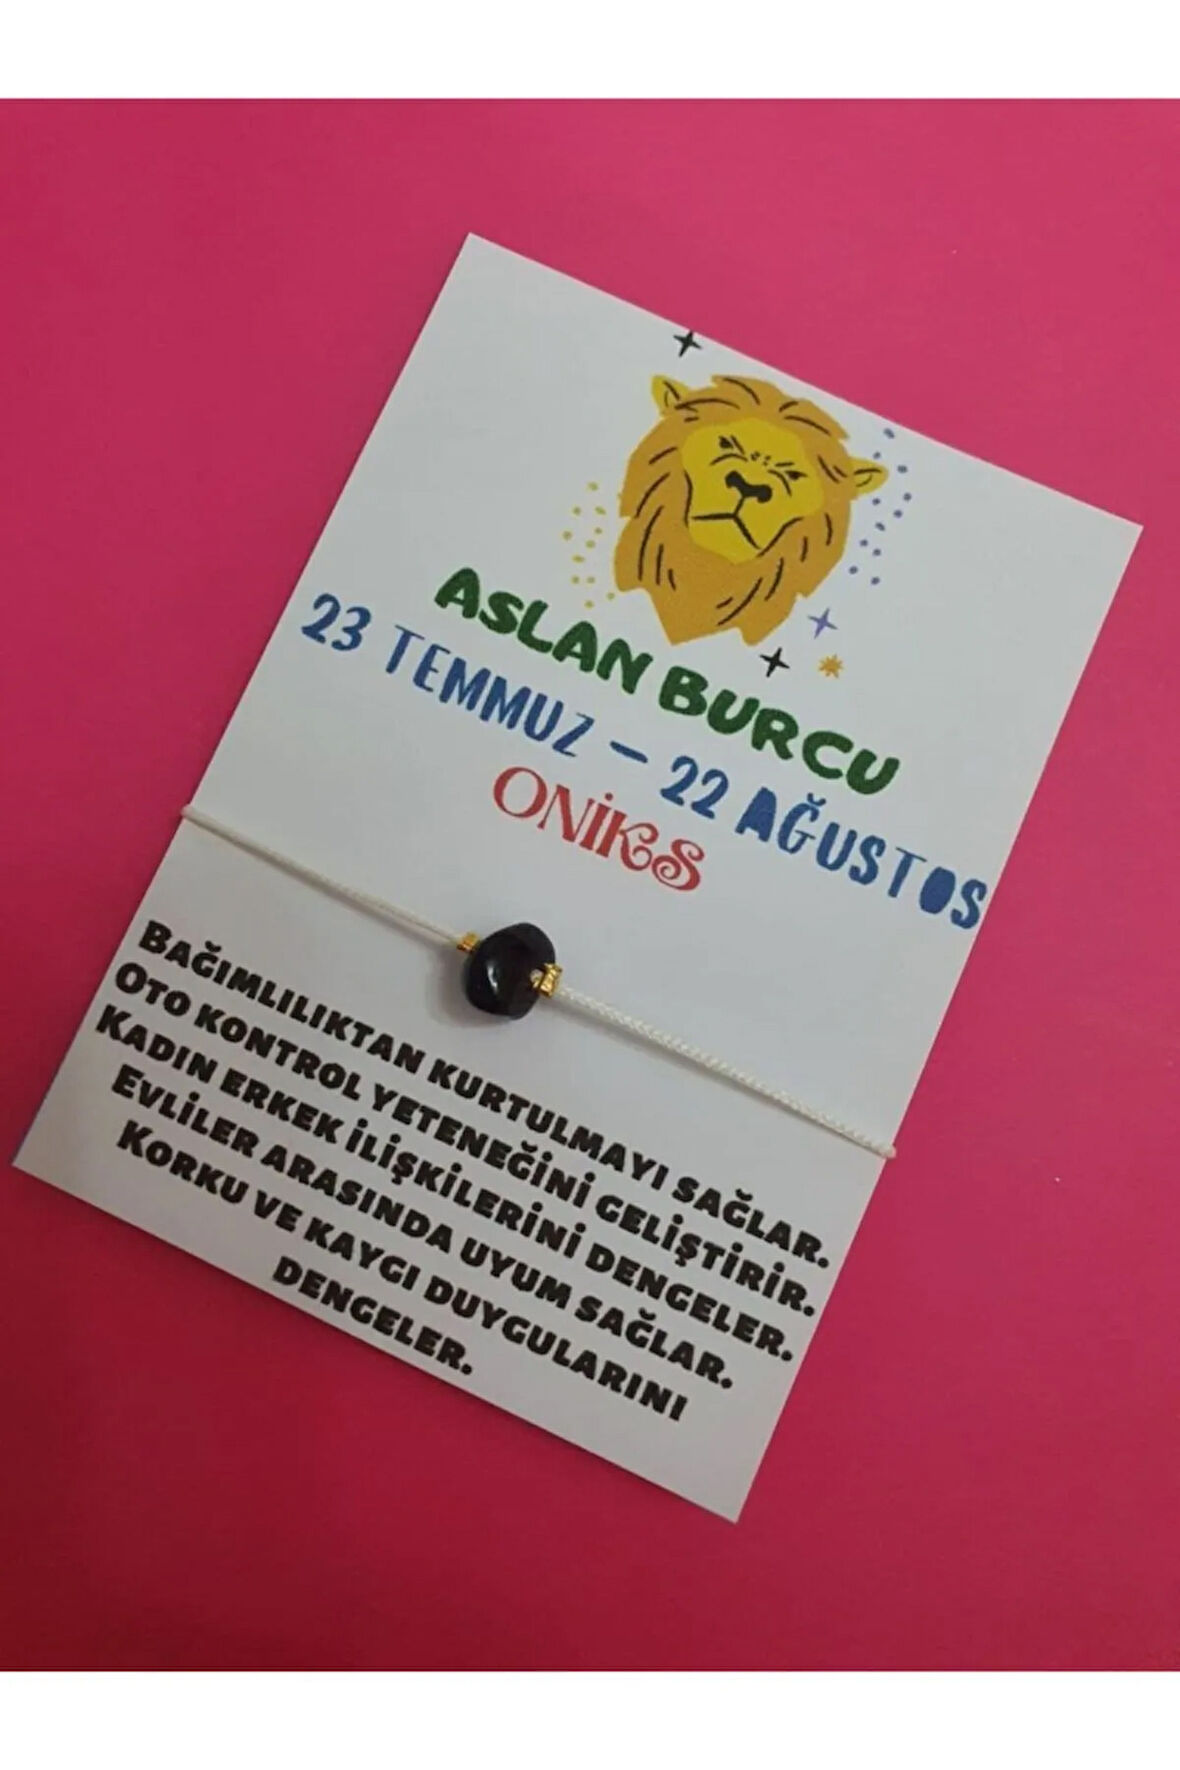 ASLAN BURCU
23 TEMMUZ – 22 AĞUSTOS
ONİKS
BAĞIMLILIKTAN KURTULMAYI SAĞLAR.
OTO KONTROL YETENEĞİNİ GELİŞTİRİR.
KADIN ERKEK İLİŞKİLERİNİ DENGELER.
EVLİLER ARASINDA UYUM SAĞLAR.
KORKU VE KAYGI DUYGULARINI
DENGELER.